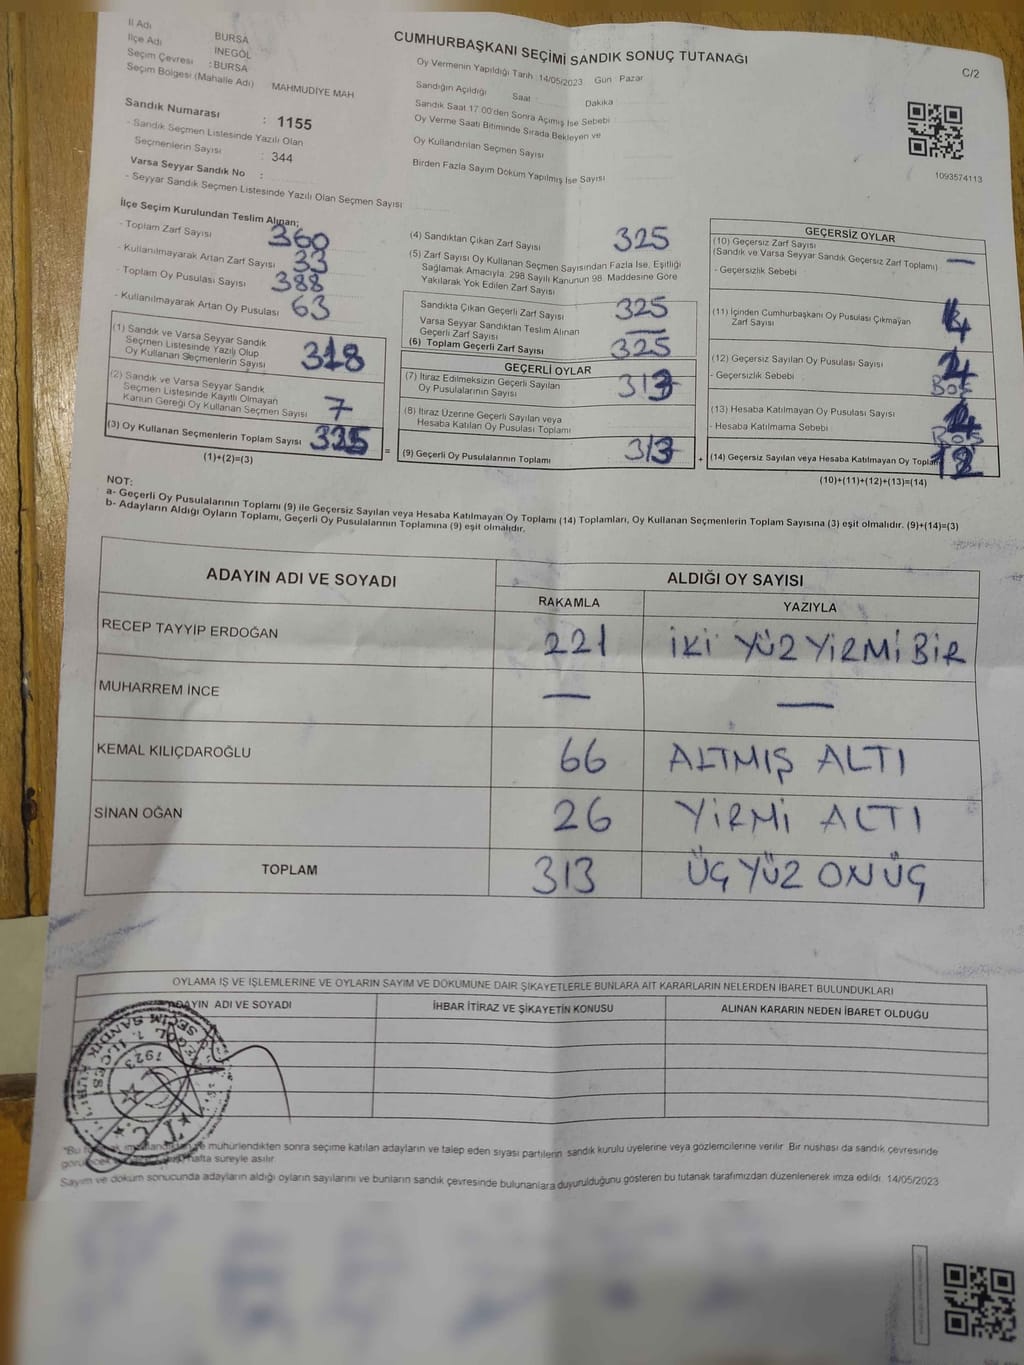 İl Adı
BURSA
İlçe Adı
İNEGÖL
Seçim Çevresi : BURSA
Seçim Bölgesi (Mahalle Adı) MAHMUDİYE MAH
CUMHURBAŞKANI SEÇİMİ SANDIK SONUÇ TUTANAĞI
C/2
Oy Vermenin Yapıldığı Tarih 14/05/2023 Gün Pazar
Sandığın Açıldığı Saat Dakika
Sandık Saat 17:00'den Sonra Açılmış İse Sebebi
Oy Verme Saati Bitiminde Sırada Bekleyen ve
Oy Kullandırılan Seçmen Sayısı
Birden Fazla Sayım Döküm Yapılmış İse Sayısı
1093574113
Sandık Numarası : 1155
- Sandık Seçmen Listesinde Yazılı Olan
Seçmenlerin Sayısı : 344
Varsa Seyyar Sandık No :
- Seyyar Sandık Seçmen Listesinde Yazılı Olan Seçmen Sayısı
İlçe Seçim Kurulundan Teslim Alınan;
- Toplam Zarf Sayısı 360
- Kullanılmayarak Artan Zarf Sayısı 33
- Toplam Oy Pusulası Sayısı 388
- Kullanılmayarak Artan Oy Pusulası 63
(1) Sandık ve Varsa Seyyar Sandık
Seçmen Listesinde Yazılı Olup
Oy Kullanan Seçmenlerin Sayısı 318
(2) Sandık ve Varsa Seyyar Sandık
Seçmen Listesinde Kayıtlı Olmayan
Kanun Gereği Oy Kullanan Seçmen Sayısı 7
(3) Oy Kullanan Seçmenlerin Toplam Sayısı 325
(1)+(2)=(3)
=
(4) Sandıktan Çıkan Zarf Sayısı 325
(5) Zarf Sayısı Oy Kullanan Seçmen Sayısından Fazla İse, Eşitliği
Sağlamak Amacıyla; 298 Sayılı Kanunun 98. Maddesine Göre
Yakılarak Yok Edilen Zarf Sayısı
Sandıkta Çıkan Geçerli Zarf Sayısı 325
Varsa Seyyar Sandıktan Teslim Alınan
Geçerli Zarf Sayısı —
(6) Toplam Geçerli Zarf Sayısı 325
GEÇERLİ OYLAR
(7) İtiraz Edilmeksizin Geçerli Sayılan
Oy Pusulalarının Sayısı 313
(8) İtiraz Üzerine Geçerli Sayılan veya
Hesaba Katılan Oy Pusulası Toplamı
(9) Geçerli Oy Pusulalarının Toplamı 313
+
GEÇERSİZ OYLAR
(10) Geçersiz Zarf Sayısı
(Sandık ve Varsa Seyyar Sandık Geçersiz Zarf Toplamı) —
- Geçersizlik Sebebi
(11) İçinden Cumhurbaşkanı Oy Pusulası Çıkmayan
Zarf Sayısı
(12) Geçersiz Sayılan Oy Pusulası Sayısı
- Geçersizlik Sebebi BOŞ
(13) Hesaba Katılmayan Oy Pusulası Sayısı
- Hesaba Katılmama Sebebi BOŞ
(14) Geçersiz Sayılan veya Hesaba Katılmayan Oy Toplamı 12
(10)+(11)+(12)+(13)=(14)
NOT:
a- Geçerli Oy Pusulalarının Toplamı (9) ile Geçersiz Sayılan veya Hesaba Katılmayan Oy Toplamı (14) Toplamları, Oy Kullanan Seçmenlerin Toplam Sayısına (3) eşit olmalıdır. (9)+(14)=(3)
b- Adayların Aldığı Oyların Toplamı, Geçerli Oy Pusulalarının Toplamına (9) eşit olmalıdır.
ADAYIN ADI VE SOYADI
ALDIĞI OY SAYISI
RAKAMLA YAZIYLA
RECEP TAYYİP ERDOĞAN 221 İKİ YÜZ YİRMİ BİR
MUHARREM İNCE — —
KEMAL KILIÇDAROĞLU 66 ALTMIŞ ALTI
SİNAN OĞAN 26 YİRMİ ALTI
TOPLAM 313 ÜÇ YÜZ ON ÜÇ
OYLAMA İŞ VE İŞLEMLERİNE VE OYLARIN SAYIM VE DÖKÜMÜNE DAİR ŞİKAYETLERLE BUNLARA AİT KARARLARIN NELERDEN İBARET BULUNDUKLARI
ADAYIN ADI VE SOYADI İHBAR İTİRAZ VE ŞİKAYETİN KONUSU ALINAN KARARIN NEDEN İBARET OLDUĞU
T.C.
1923
mühürlendikten sonra seçime katılan adayların ve talep eden siyasi partilerin sandık kurulu üyelerine veya gözlemcilerine verilir. Bir nüshası da sandık çevresinde
hafta süreyle asılır.
Sayım ve döküm sonucunda adayların aldığı oyların sayılarını ve bunların sandık çevresinde bulunanlara duyurulduğunu gösteren bu tutanak tarafımızdan düzenlenerek imza edildi. 14/05/2023